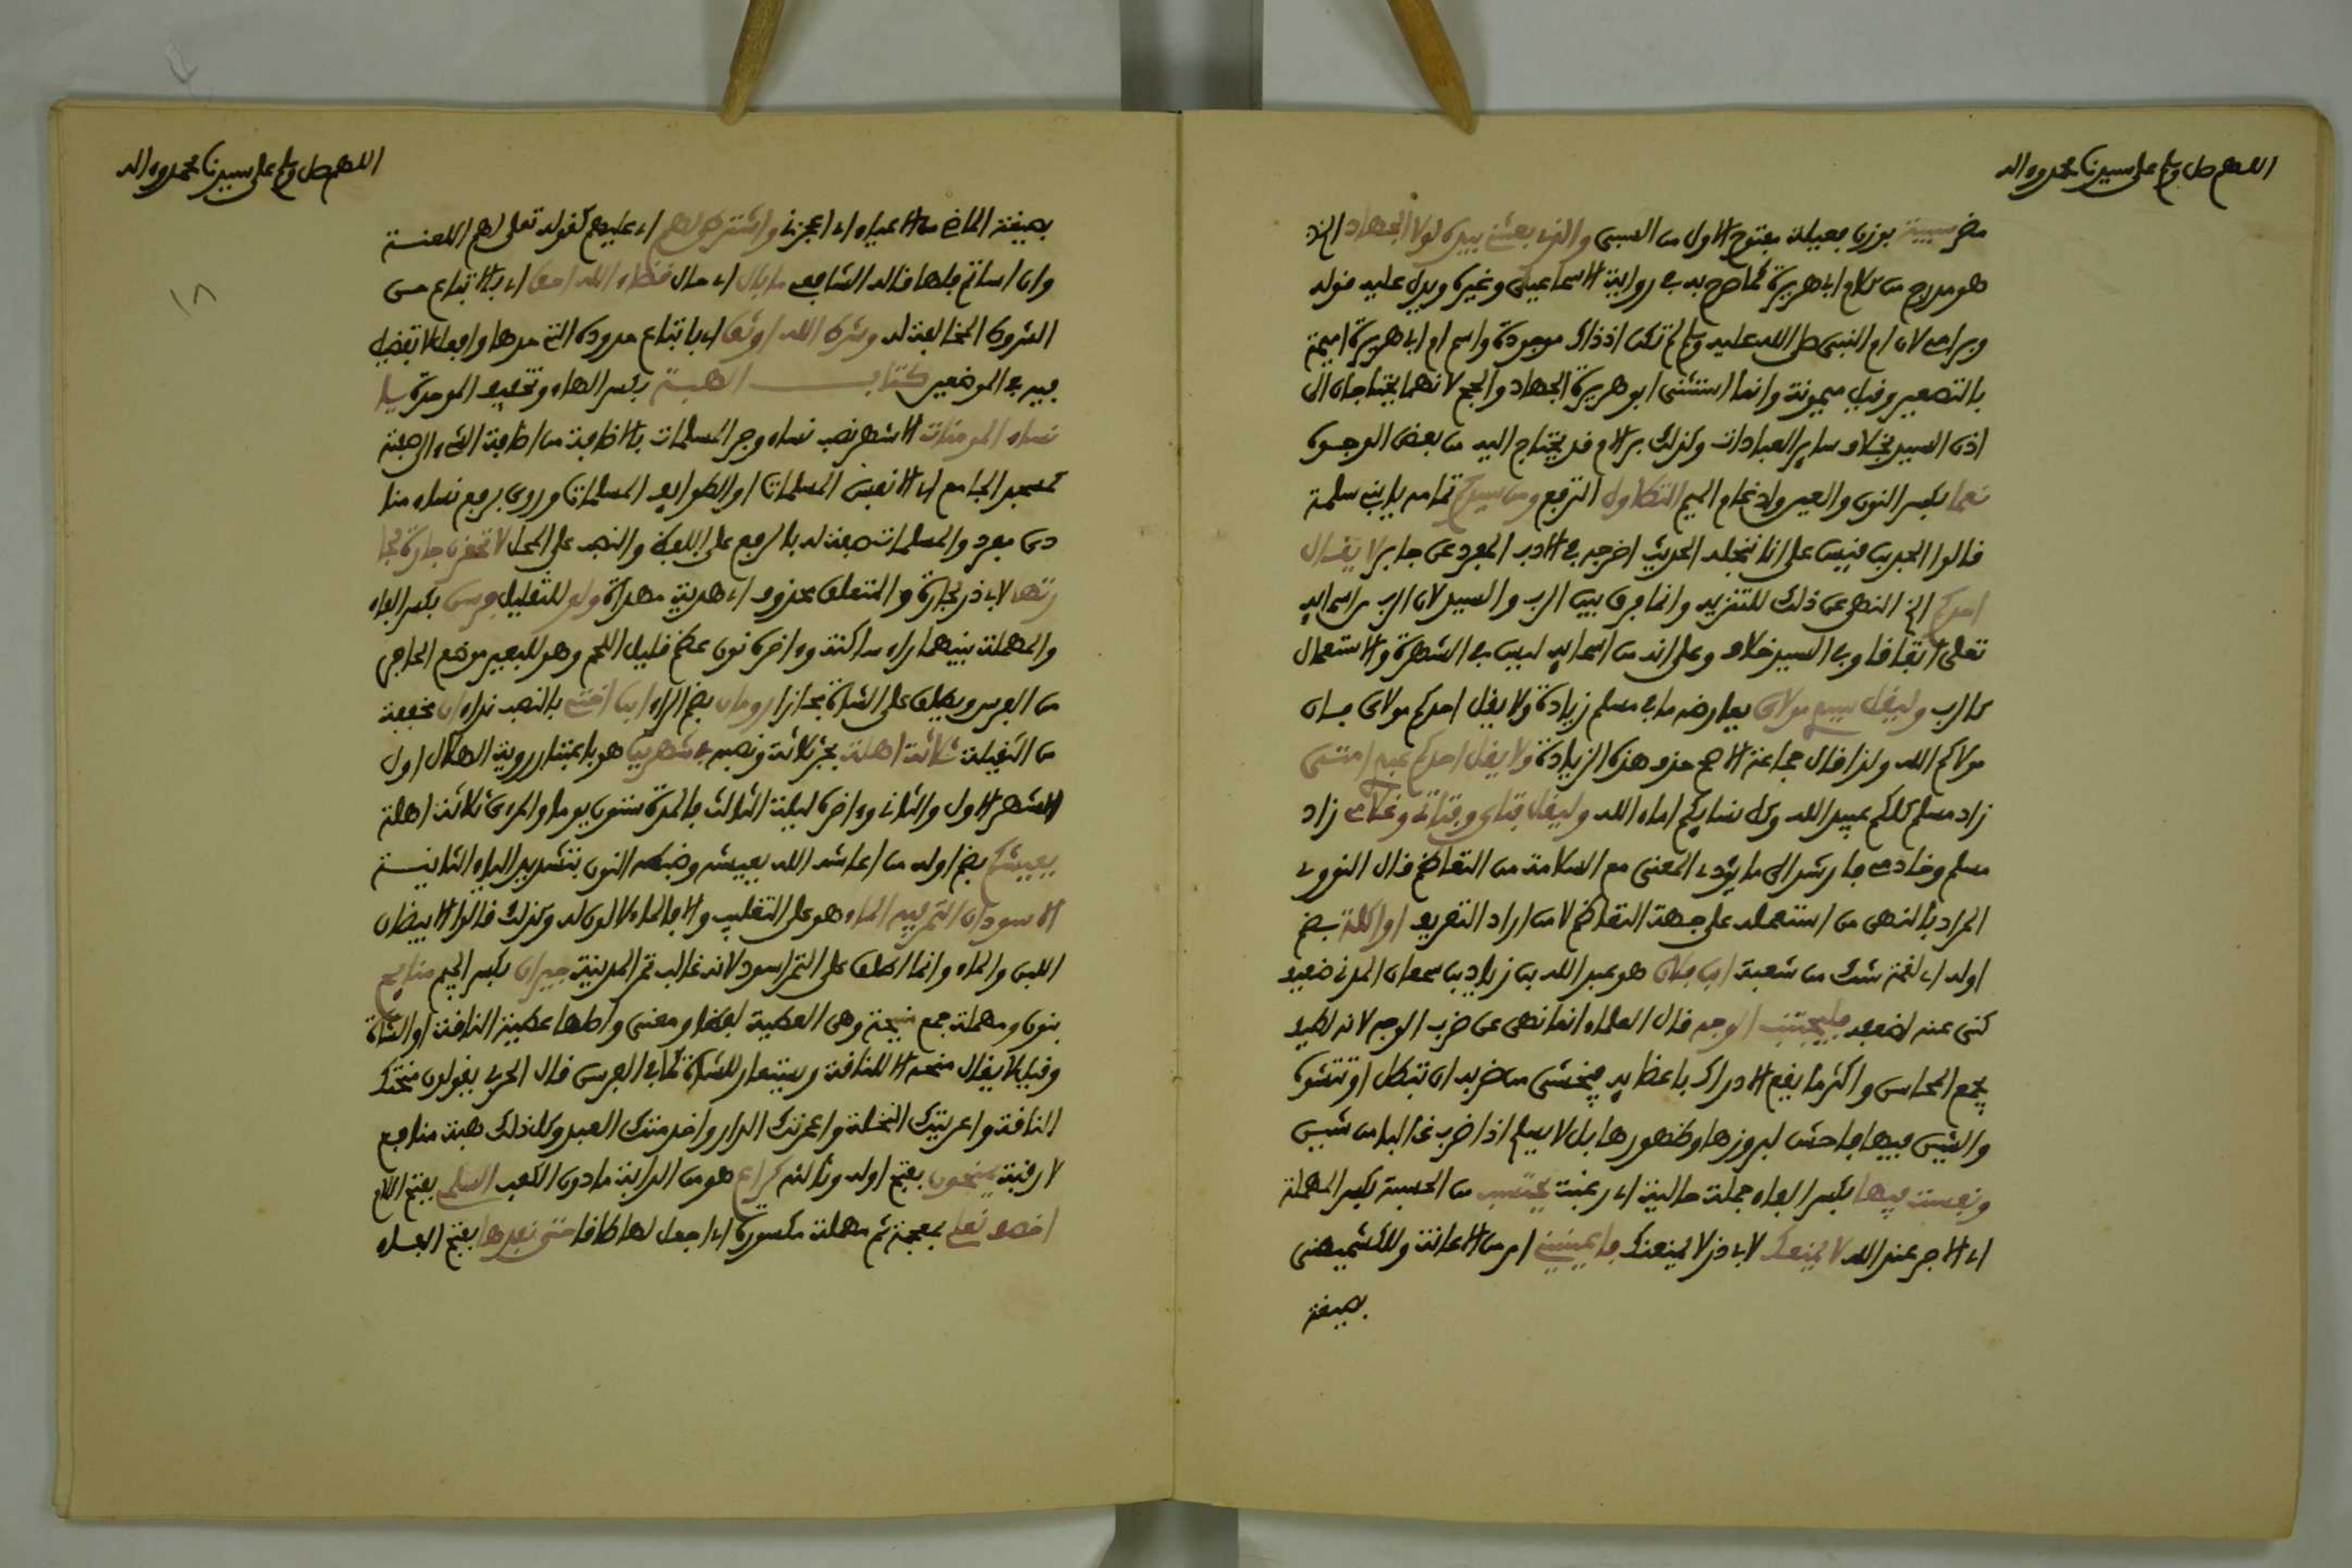 اللهم صل وسلم على سيدنا محمد وءاله
مضر سبية بوزن فعيلة مفتوح الاول من السبي والذي نفسي بيده لولا الجهاد الخ
هو مدرج من كلام ابي هريرة كما صرح به في رواية الاسماعيلي وغيره ويدل عليه قوله
وبر امي لان ام النبي صلى الله عليه وسلم لم تكن اذ ذاك موجودة واسم ام ابي هريرة اميمة
بالتصغير وقيل ميمونة وانما استثنى ابو هريرة الجهاد والحج لانهما يحتاجان الى
اذن السيد بخلاف ساير العبادات وكذلك بر الام قد يحتاج اليه من بعض الوجوه
نعما بكسر النون والعين وادغام الميم التطاول الترفع ومن سيدكم تمامه يا بني سلمة
قالوا الجد بن قيس على انا نبخله الحديث اخرجه في الادب المفرد عن جابر لا يقل
احدكم الخ النهي عن ذلك للتنزيه وانما فرق بين الرب والسيد لان الرب من اسمايه
تعلى اتفاقا وفي السيد خلاف وعلى انه من اسمايه ليس في الشهرة والاستعمال
كالرب وليقل سيدي مولاي يعارضه ما في مسلم زيادة ولا يقل احدكم مولاي فان
مولاكم الله ولذا قال جماعة الاصح حذف هذه الزيادة ولا يقل احدكم عبدي امتي
زاد مسلم كلكم عبيد الله وكل نسايكم اماء الله وليقل فتاي وفتاتي وغلامي زاد
مسلم وخادمي فارشد الى ما يؤدي المعنى مع السلامة من التعاظم قال النووي
المراد بالنهي من استعمله على جهة التعاظم لا من اراد التعريف او اكلة بضم
اوله اي لقمة شك من شعبة ابن فلان هو عبد الله بن زياد بن سمعان المدني ضعيف
كنى عنه لضعفه فليجتنب الوجه قال العلماء انما نهى عن ضرب الوجه لانه لطيف
يجمع المحاسن واكثر ما يقع الادراك باعضايه فيخشى من ضربه ان تبطل او تتشوه
والشين فيها فاحش لبروزها وظهورها بل لا يسلم اذا ضرب غالبا من شين
ونفست فيها بكسر الفاء جملة حالية اي رغبت تحتسب من الحسبة بكسر المهملة
اي الاجر عند الله لا يمنعك لابي ذر لا يمنعنك فاعينيني امر من الاعانة وللكشميهني
بصيغة
اللهم صل وسلم على سيدنا محمد وءاله
١٨
بصيغة الماضي من الاعياء اي اعجزني واشترطي لهم اي عليهم كقوله تعلى لهم اللعنة
وان اساتم فلها قاله الشافعي ما بال اي حال قضاء الله احق اي بالاتباع من
الشروط المخالفة له وشرط الله اوثق اي باتباع حدوده التي حدها وافعل لا تفضيل
فيه في الموضعين كتاب الهبة بكسر الهاء وتخفيف الموحدة يا
نساء المومنات الاشهر نصب نساء وجر المسلمات بالاضافة من اضافة الشيء الى صفته
كمسجد الجامع اي الانفس المسلمات او الطوايف المسلمات وروي برفع نساء منا
دى مفرد والمسلمات صفة له بالرفع على اللفظ والنصب على المحل لا تحقرن جارة لجا
رتها لابي ذر لجارة والمتعلق محذوف اي هدية مهداة ولو للتقليل فرسن بكسر الفاء
والمهملة بينهما راء ساكنة وءاخره نون عظم قليل اللحم وهو للبعير موضع الحافر
من الفرس ويطلق على الشاة مجازا رومان بضم الراء ابن اختي بالنصب نداء ان مخففة
من الثقيلة ثلاثة اهلة بجر ثلاثة ونصبه في شهرين هو باعتبار روية الهلال اول
الشهر الاول والثاني وءاخره ليلة الثالث فالمدة ستون يوما والمرءي ثلاثة اهلة
يعيشكم بضم اوله من اعاشه الله يعيشه وضبطه النووي بتشديد الياء الثانية
الاسودان التمر والماء هو على التغليب والا فالماء لا لون له وكذلك قالوا الابيضان
اللبن والماء وانما اطلق على التمر اسود لانه غالب تمر المدينة جيران بكسر الجيم منايح
بنون ومهملة جمع منيحة وهي العطية لفظا ومعنى واصلها عطية الناقة او الشاة
وقيل لا يقال منيحة الا للناقة وتستعار للشاة كما في الفرسن قال الحربي يقولون منحتك
الناقة واعريتك النخلة واعمرتك الدار واخدمتك العبد وكل ذلك هبة منافع
لا رقبة يمنحون بفتح اوله وثالثه كراع هو من الدابة ما دون الكعب السلمي بفتح اللام
اخصف نعلي بمعجمة ثم مهملة مكسورة اي اجعل لها طاقا حتى نفدها بفتح الفاء